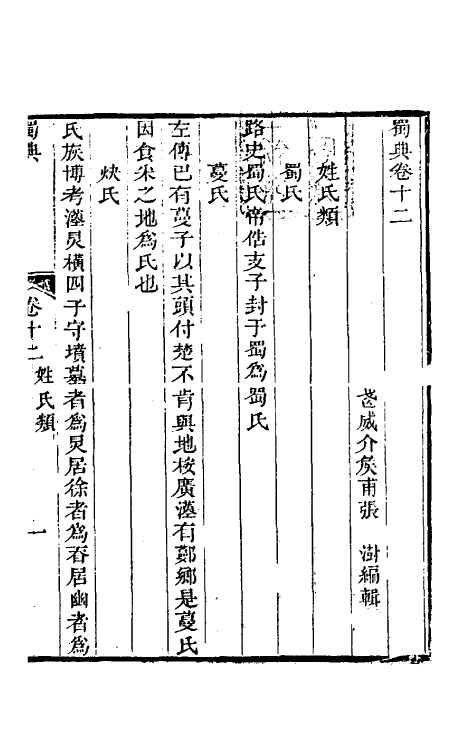 蜀典卷十二
武威介矦甫張　澍編輯
姓氏類
蜀氏
路史蜀氏帝俈支子封于蜀爲蜀氏
蔓氏
左傳巴有蔓子以其頭付楚不肯與地桉廣漢有鄭鄉是蔓氏
因食采之地爲氏也
炔氏
氏族博考漢炅橫四子守墳墓者爲炅居徐者爲吞居幽者爲
蜀典
卷十二 姓氏類
一